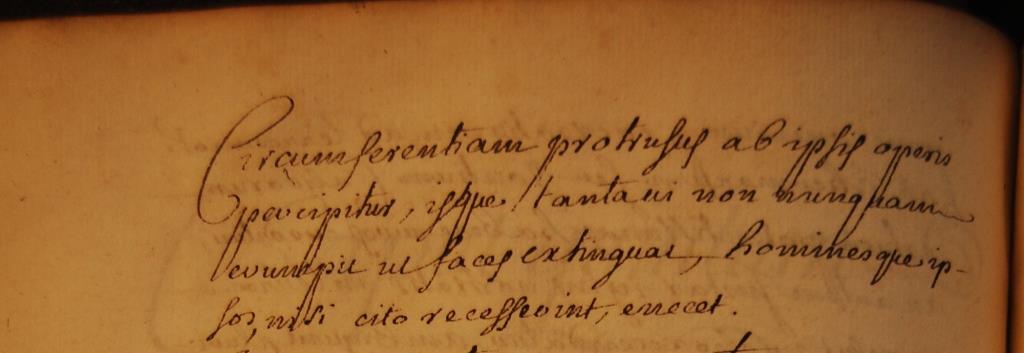 Circumferentiam protrusus ab ipsis operis
percipitur, isque tanta vi non nunquam
erumpit ut faces extinguat, hominesque ip-
sos, nisi cito recesserint, enecet.